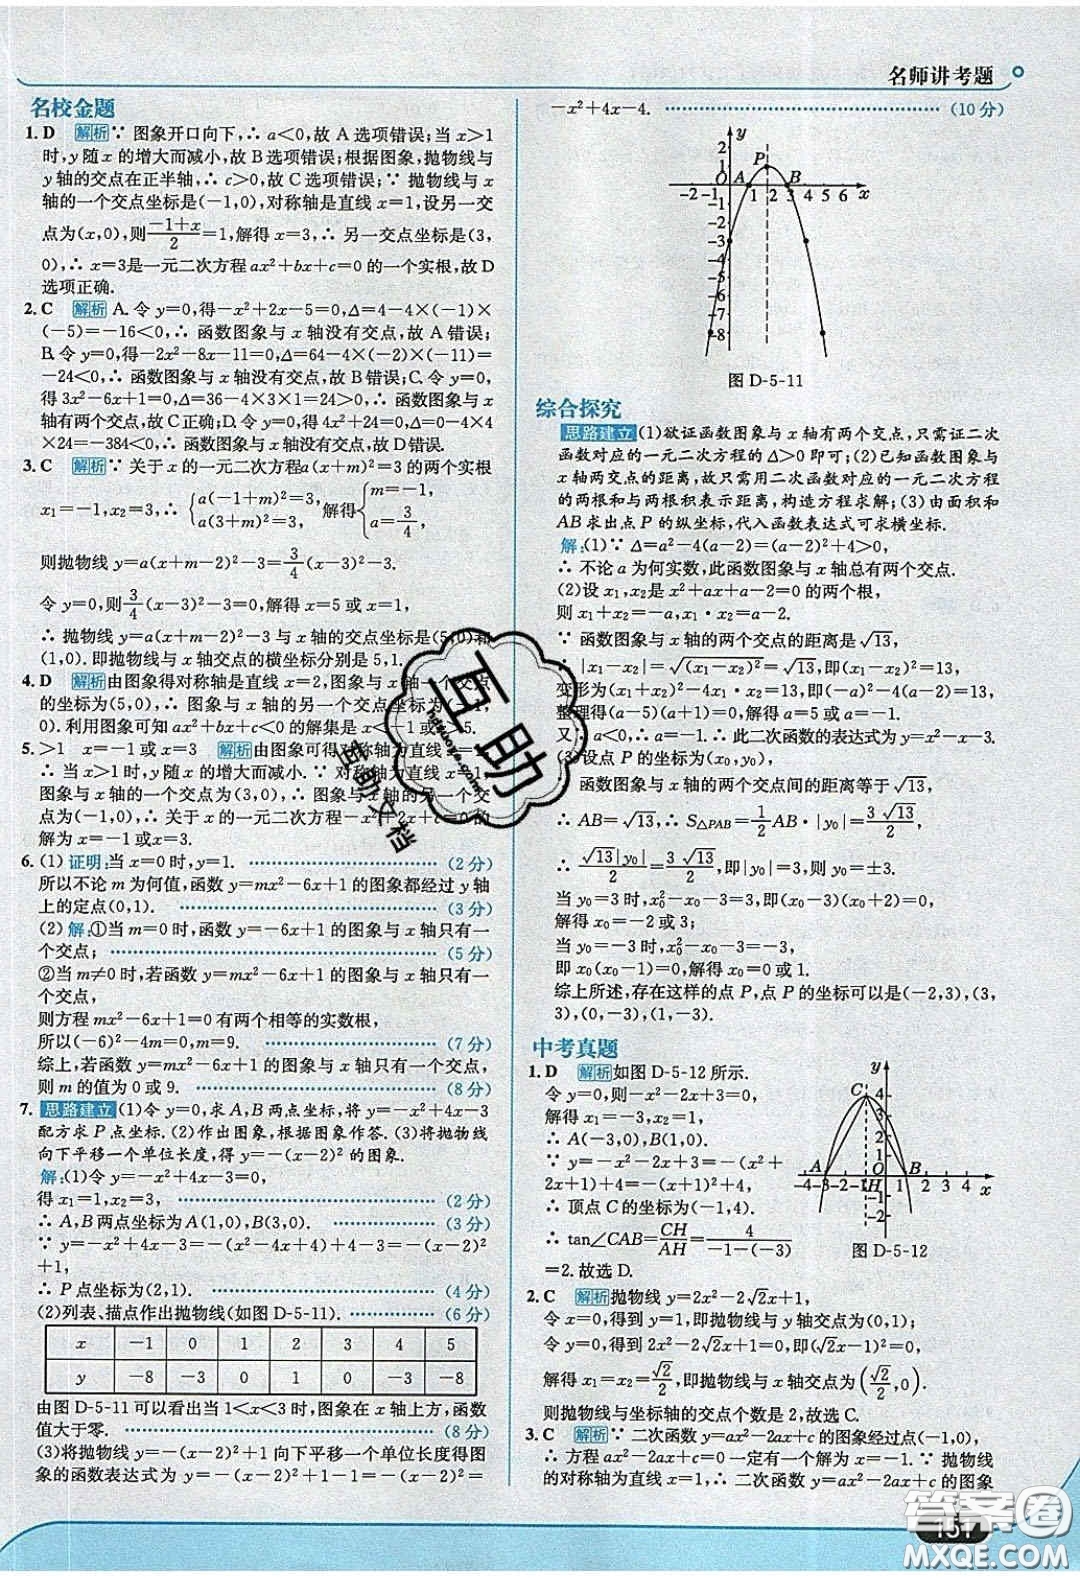 名师讲考题
名校金题
1. D 解析∵ 图象开口向下,∴ a<0,故 A 选项错误;当 x>1
时,y 随 x 的增大而减小,故 B 选项错误;根据图象,抛物线与
y 轴的交点在正半轴,∴ c>0,故 C 选项错误;∵ 抛物线与 x
轴的一个交点坐标是(-1,0),对称轴是直线 x=1,设另一交
点为(x,0),则(-1+x)/2=1,解得 x=3,∴ 另一交点坐标是(3,
0),∴ x=3是一元二次方程 ax²+bx+c=0 的一个实根,故 D
选项正确.
2. C 解析 A.令 y=0,得-x²+2x-5=0,Δ=4-4×(-1)×
(-5)=-16<0,∴ 函数图象与 x 轴没有交点,故 A 错误;
B.令 y=0,得-2x²-8x-11=0,Δ=64-4×(-2)×(-11)=
-24<0,∴ 函数图象与 x 轴没有交点,故 B 错误;C.令 y=0,
得 3x²-6x+1=0,Δ=36-4×3×1=24>0,∴ 函数图象与 x
轴有两个交点,故 C 正确;D.令 y=0,得 4x²+24=0,Δ=0-4×4
×24=-384<0,∴ 函数图象与 x 轴没有交点,故 D 错误.
3. C 解析∵ 关于 x 的一元二次方程a(x+m)²=3 的两个实根
x₁=-1,x₂=3,∴ {a(-1+m)²=3, a(3+m)²=3, 解得{m=-1, a=3/4,
则抛物线 y=a(x+m-2)²-3=3/4(x-3)²-3.
令 y=0,则3/4(x-3)²-3=0,解得 x=5 或 x=1,
∴ 抛物线 y=a(x+m-2)²-3 与 x 轴的交点坐标是(5,0)和
(1,0).即抛物线与 x 轴交点的横坐标分别是 5,1.
4. D 解析由图象得对称轴是直线 x=2,图象与 x 轴的一个交点
的坐标为(5,0),∴ 图象与 x 轴的另一个交点坐标为(-1,
0).利用图象可知 ax²+bx+c<0 的解集是 x<-1 或 x>5.
5. >1 x=-1 或 x=3 解析由图象可得对称轴为直线 x=1,
∴ 当 x>1 时,y 随 x 的增大而减小.∵ 对称轴为直线 x=1,
图象与 x 轴的一个交点为(3,0),∴ 图象与 x 轴的另一个交
点为(-1,0),∴ 关于 x 的一元二次方程-x²+2x+c=0 的
解为 x=-1 或x=3.
6. (1) 证明:当 x=0 时,y=1. (2 分)
所以不论 m 为何值,函数 y=mx²-6x+1 的图象都经过 y 轴
上的定点(0,1). (3 分)
(2) 解:①当 m=0 时,函数 y=-6x+1 的图象与 x 轴只有一
个交点; (5 分)
②当 m≠0 时,若函数 y=mx²-6x+1 的图象与 x 轴只有一
个交点,
则方程 mx²-6x+1=0 有两个相等的实数根,
所以(-6)²-4m=0,m=9. (7 分)
综上,若函数 y=mx²-6x+1 的图象与 x 轴只有一个交点,
则 m 的值为 0 或 9. (8 分)
7. 思路建立 (1)令 y=0,求 A,B 两点坐标,将 y=-x²+4x-3
配方求 P 点坐标.(2)作出图象,根据图象作答.(3)将抛物线
向下平移一个单位长度,得 y=-(x-2)² 的图象.
解:(1)令 y=-x²+4x-3=0,
得 x₁=1,x₂=3, (2 分)
∴ A,B 两点坐标为 A(1,0),B(3,0). (3 分)
∵ y=-x²+4x-3=-(x²-4x+3)=-(x-2)²
+1,
∴ P 点坐标为(2,1). (4 分)
(2)列表、描点作出抛物线(如图 D-5-11). (6 分)
x -1 0 1 2 3 4 5
y -8 -3 0 1 0 -3 -8
由图 D-5-11 可以看出当 1<x<3 时,图象在 x 轴上方,函数
值大于零. (8 分)
(3)将抛物线 y=-(x-2)²+1 向下平移一个单位长度得图
象的函数表达式为 y=-(x-2)²+1-1=-(x-2)²=
-x²+4x-4. (10 分)
y
2
1
P
O A B
-2 -1 1 2 3 4 5 6 x
-1
-2
-3
-4
-5
-6
-7
-8
图 D-5-11
综合探究
思路建立 (1)欲证函数图象与 x 轴有两个交点,只需证二次
函数对应的一元二次方程的 Δ>0 即可;(2)已知函数图象与
x 轴两交点的距离,故只需用二次函数对应的一元二次方程
的两根和与两根积表示距离,构造方程求解;(3)由面积和
AB 求出点 P 的纵坐标,代入函数表达式可求横坐标.
解:(1)∵ Δ=a²-4(a-2)=(a-2)²+4>0,
∴ 不论 a 为何实数,此函数图象与 x 轴总有两个交点.
(2)设 x₁,x₂ 是 x²+ax+a-2=0 的两个根,
则 x₁+x₂=-a,x₁·x₂=a-2.
∵ 函数图象与 x 轴的两个交点的距离是√13,
∴ |x₁-x₂|=√(x₁-x₂)²=√13,即(x₁-x₂)²=13,
变形为(x₁+x₂)²-4x₁·x₂=13,即(-a)²-4(a-2)=13,
整理得(a-5)(a+1)=0,解得 a=5 或 a=-1.
又∵ a<0,∴ a=-1.∴ 此二次函数的表达式为 y=x²-x-3.
(3)设点 P 的坐标为(x₀,y₀),
∵ 函数图象与 x 轴的两个交点间的距离等于√13,
∴ AB=√13,∴ S△PAB=1/2 AB·|y₀|=3√13/2,
∴ √13|y₀|/2=3√13/2,即|y₀|=3,则 y₀=±3.
当 y₀=3 时,x₀²-x₀-3=3,即(x₀-3)(x₀+2)=0,
解得 x₀=-2 或 3;
当 y₀=-3 时,x₀²-x₀-3=-3,
即 x₀(x₀-1)=0,解得 x₀=0 或 1.
综上所述,存在这样的点 P,点 P 的坐标可以是(-2,3),(3,
3),(0,-3),(1,-3).
中考真题
1. D 解析如图 D-5-12 所示.
令 y=0,则-x²-2x+3=0,
解得 x₁=-3,x₂=1,
∴ A(-3,0),B(1,0).
∵ y=-x²-2x+3=-(x²+
2x+1)+4=-(x+1)²+4,
∴ 顶点 C 的坐标为(-1,4).
∴ tan∠CAB=CH/AH=4/(-1-(-3))
=2.故选 D.
y
C 4
3
2
1
A O B
-4 -3 -2 -1 H 1 2 3 4 x
-1
-2
图 D-5-12
2. C 解析抛物线 y=2x²-2√2x+1,
令 x=0,得到 y=1,即抛物线与 y轴交点为(0,1);
令 y=0,得到 2x²-2√2x+1=0,即(√2x-1)²=0,
解得 x₁=x₂=√2/2,即抛物线与 x 轴交点为(√2/2,0).
则抛物线与坐标轴的交点个数是 2,故选 C.
3. C 解析∵ 二次函数 y=ax²-2ax+c 的图象经过点(-1,0),
∴ 方程 ax²-2ax+c=0 一定有一个解为 x=-1.∵ 抛物线
的对称轴为直线 x=1,∴ 二次函数 y=ax²-2ax+c 的图象
151
互助
hdzuoye.com
互助文档
答案圈
MXQE.COM